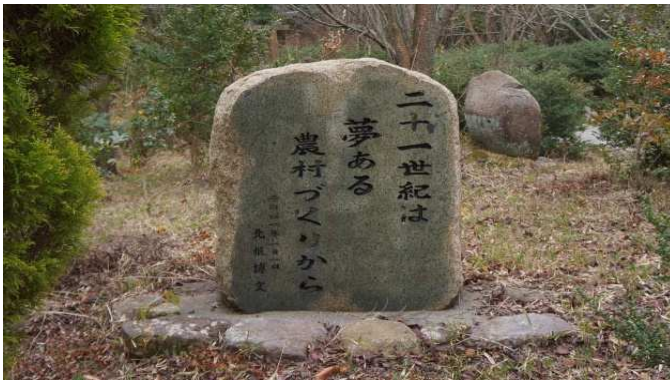 二十一世紀は
夢ある
農村づくりから